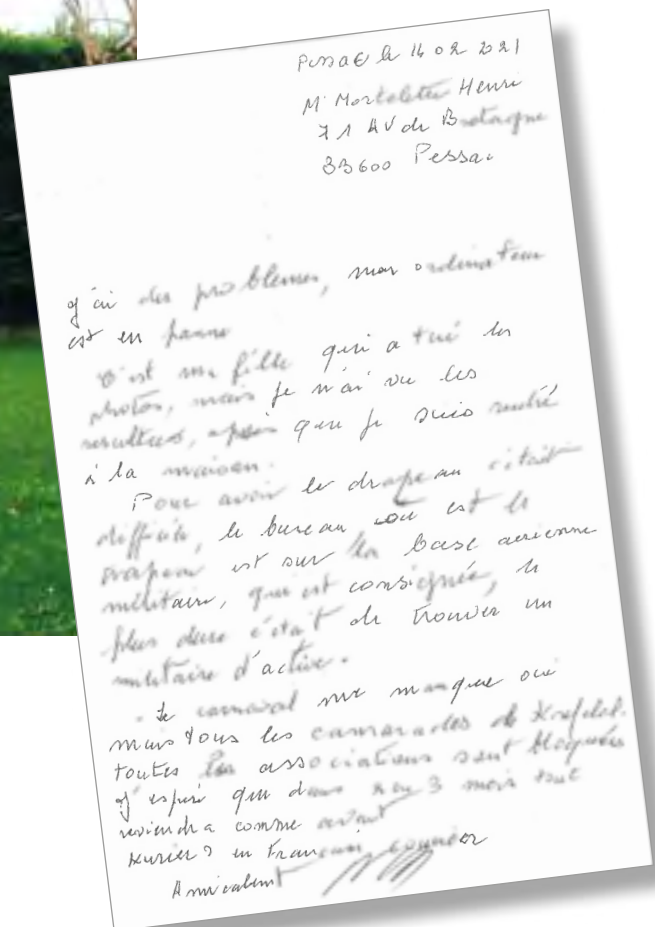 Pessac le 16 02 2021
Mr Henri
71 AV de Bretagne
33600 Pessac
J'ai des problemes, mon ordinateur
est en panne
C'est ma fille qui a tué les
photos, mais je n'ai vu les
resultats, que je suis rentré
à la maison.
Pour avoir le drapeau c'était
difficile, le bureau, où est le
drapeau est sur la base aerienne
militaire, qui est consignée, le
plus dure c'était de trouver un
militaire d'active.
Le carnaval me manque oui
mais tous les camarades de Krefeld.
toutes les associations sont bloquées
J'espère que dans 3 mois tout
reviendra comme avant
en Francais
Amicalement